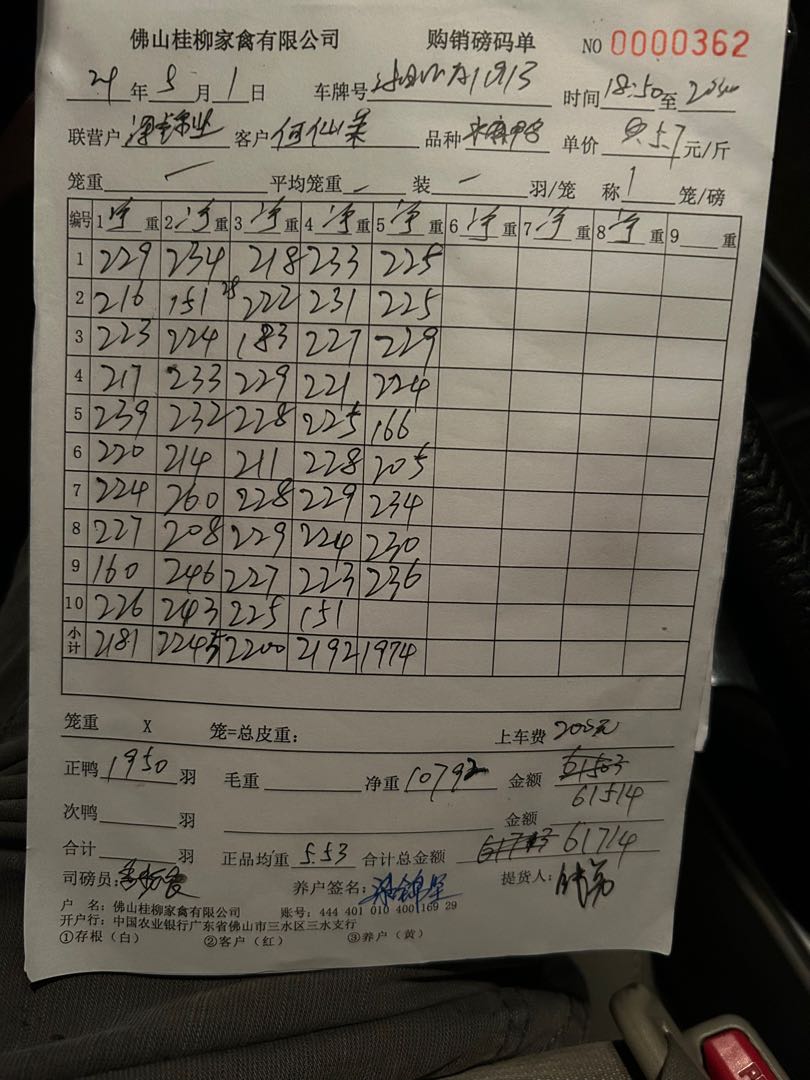 佛山桂柳家禽有限公司 购销磅码单 NO 0000362
24年5月1日 车牌号 1913 时间 18:50 至
联营户 客户 何仙 品种 单价 5.7 元/斤
笼重 — 平均笼重 — 装 — 羽/笼 称 1 笼/磅
编号 1 净 重 2 净 重 3 净 重 4 净 重 5 净 重 6 净 重 7 净 重 8 净 重 9 重
1 229 234 218 233 225
2 216 151 28 222 231 225
3 223 224 183 227 229
4 217 233 229 221 224
5 239 232 228 225 166
6 220 214 211 228 205
7 224 260 228 229 234
8 227 208 229 224 230
9 160 246 227 223 236
10 226 243 225 151
小计 2181 2245 2200 2192 1974
笼重 X 笼=总皮重: 上车费 200元
正鸭 1950 羽 毛重 净重 10792 金额 61503
61514
次鸭 羽 金额
合计 羽 正品均重 5.53 合计总金额 61714
司磅员: 养户签名: 提货人:
户 名: 佛山桂柳家禽有限公司 账号: 444 401 010 400 1169 29
开户行: 中国农业银行广东省佛山市三水区三水支行
①存根(白) ②客户(红) ③养户(黄)